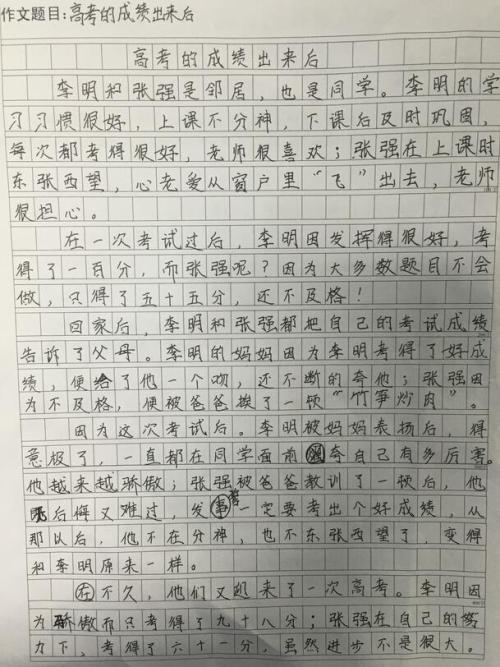 作文题目:高考的成绩出来后
高考的成绩出来后
李明和张强是邻居，也是同学。李明的学
习习惯很好，上课不分神，下课后及时巩固，
每次都考得很好，老师很喜欢；张强在上课时
东张西望，心老爱从窗户里“飞”出去，老师
很担心。
在一次考试过后，李明因发挥得很好，考
得了一百分，而张强呢？因为大多数题目不会
做，只得了五十五分，还不及格！
回家后，李明和张强都把自己的考试成绩
告诉了父母。李明的妈妈因为李明考得了好成
绩，便给了他一个吻，还不断的夸他；张强因
为不及格，便被爸爸揍了一顿“竹笋炒肉”。
因为这次考试后。李明被妈妈表扬后，得
意极了，一直都在同学面前夸自己有多厉害。
他越来越骄傲；张强被爸爸教训了一顿后，他
后悔又难过，发誓一定要考出个好成绩，从
那以后，他不在分神，也不东张西望了，变得
和李明原来一样。
在不久，他们又迎来了一次高考。李明因
为骄傲而只考得了九十八分；张强在自己的努
力下，考得了六十一分，虽然进步不是很大。